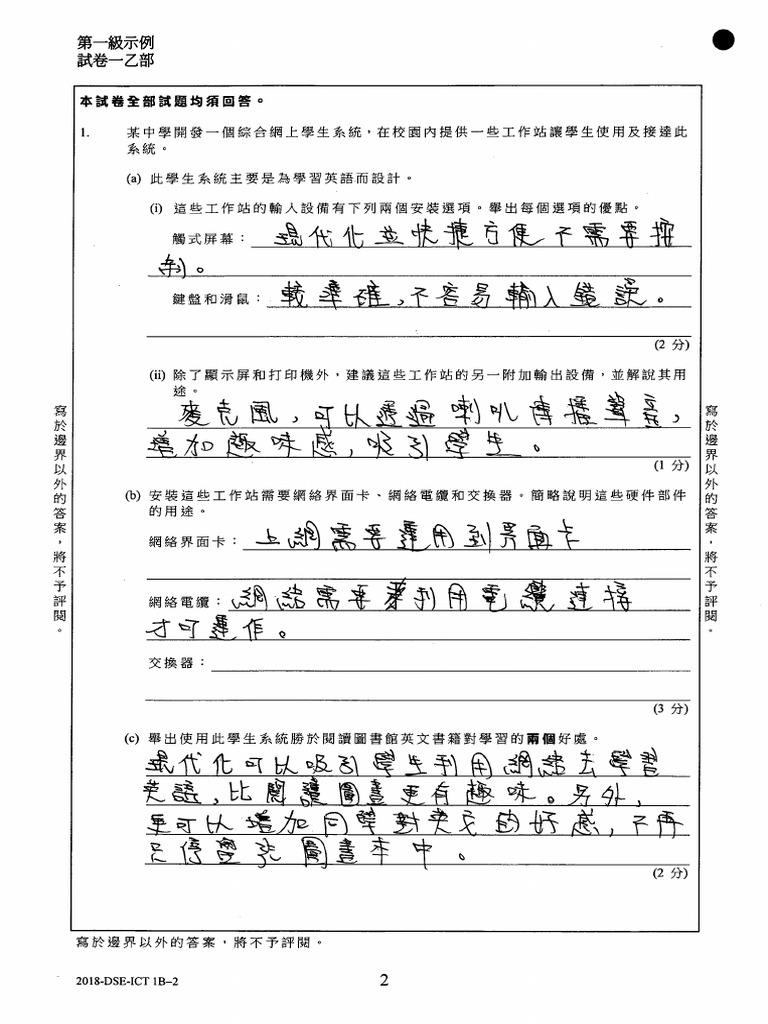 第一級示例
試卷一乙部
本試卷全部試題均須回答。
1. 某中學開發一個綜合網上學生系統，在校園內提供一些工作站讓學生使用及接達此
系統。
(a) 此學生系統主要是為學習英語而設計。
(i) 這些工作站的輸入設備有下列兩個安裝選項。舉出每個選項的優點。
觸式屏幕： 現代化並快捷方便不需要按
制。
鍵盤和滑鼠： 較準確，不容易輸入錯誤。
(2 分)
(ii) 除了顯示屏和打印機外，建議這些工作站的另一附加輸出設備，並解說其用
途。
麥克風，可以透過喇叭傳播聲音，
增加趣味感，吸引學生。
(1 分)
(b) 安裝這些工作站需要網絡界面卡、網絡電纜和交換器。簡略說明這些硬件部件
的用途。
網絡界面卡： 上網需要運用到界面卡
網絡電纜： 網絡需要利用電纜連接
才可運作。
交換器：
(3 分)
(c) 舉出使用此學生系統勝於閱讀圖書館英文書籍對學習的兩個好處。
現代化可以吸引學生利用網絡去學習
英語，比閱讀圖書更有趣味。另外，
更可以增加同學對英文的好感，不再
只停留於圖書本中。
(2 分)
寫於邊界以外的答案，將不予評閱。
寫於邊界以外的答案，將不予評閱。
寫於邊界以外的答案，將不予評閱。
2018-DSE-ICT 1B–2
2